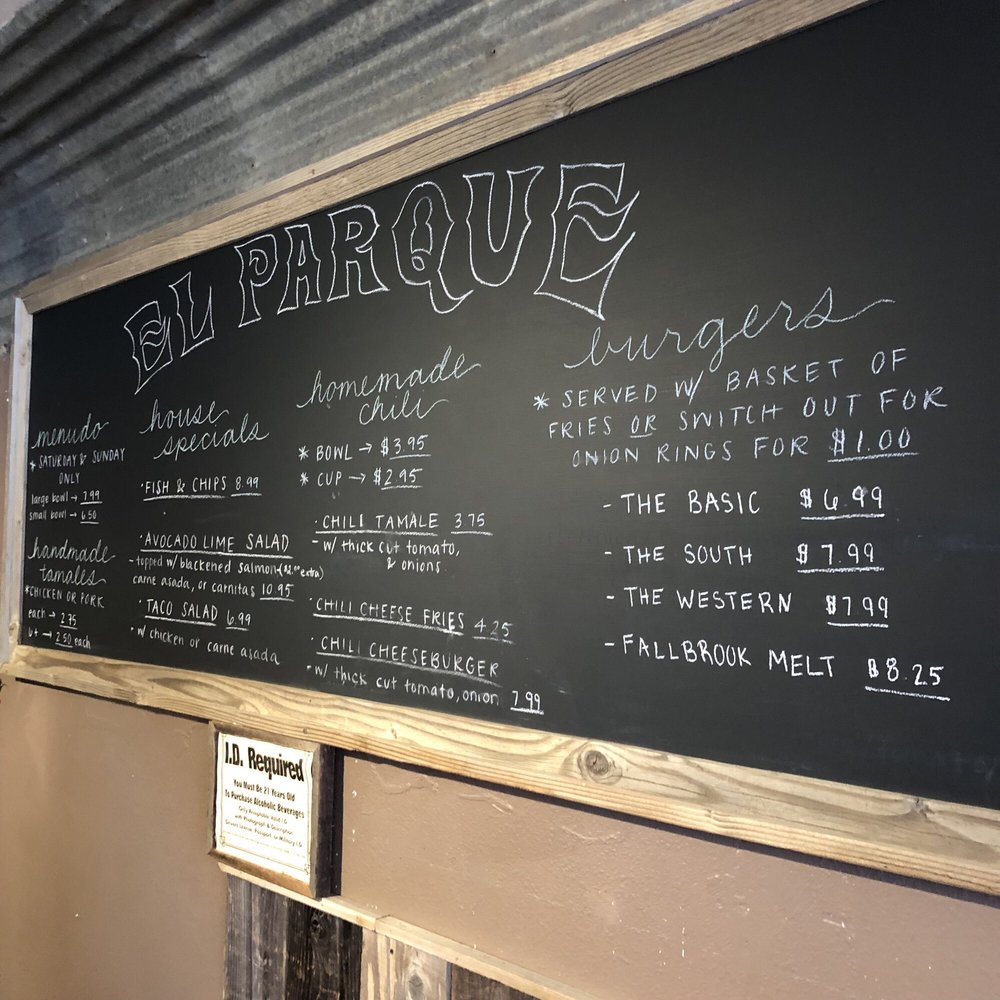 EL PARQUE
menudo
* SATURDAY & SUNDAY
ONLY
large bowl → 7.99
small bowl → 6.50
handmade
tamales
*CHICKEN OR PORK
each → 2.75
6+ → 2.50 each
house
specials
· FISH & CHIPS 8.99
· AVOCADO LIME SALAD
- topped w/ blackened salmon ($2.00 extra)
carne asada, or carnitas 10.95
· TACO SALAD 6.99
· w/ chicken or carne asada
homemade
chili
* BOWL → $3.95
* CUP → $2.95
· CHILI TAMALE 3.75
- w/ thick cut tomato,
& onions
· CHILI CHEESE FRIES 4.25
· CHILI CHEESEBURGER
- w/ thick cut tomato, onion 7.99
burgers
* SERVED W/ BASKET OF
FRIES OR SWITCH OUT FOR
ONION RINGS FOR $1.00
- THE BASIC $6.99
- THE SOUTH $7.99
- THE WESTERN $7.99
- FALLBROOK MELT $8.25
I.D. Required
You Must Be 21 Years Old
To Purchase Alcoholic Beverages
Only Acceptable Valid I.D.
with Photograph & Description:
Drivers License, Passport, or Military I.D.